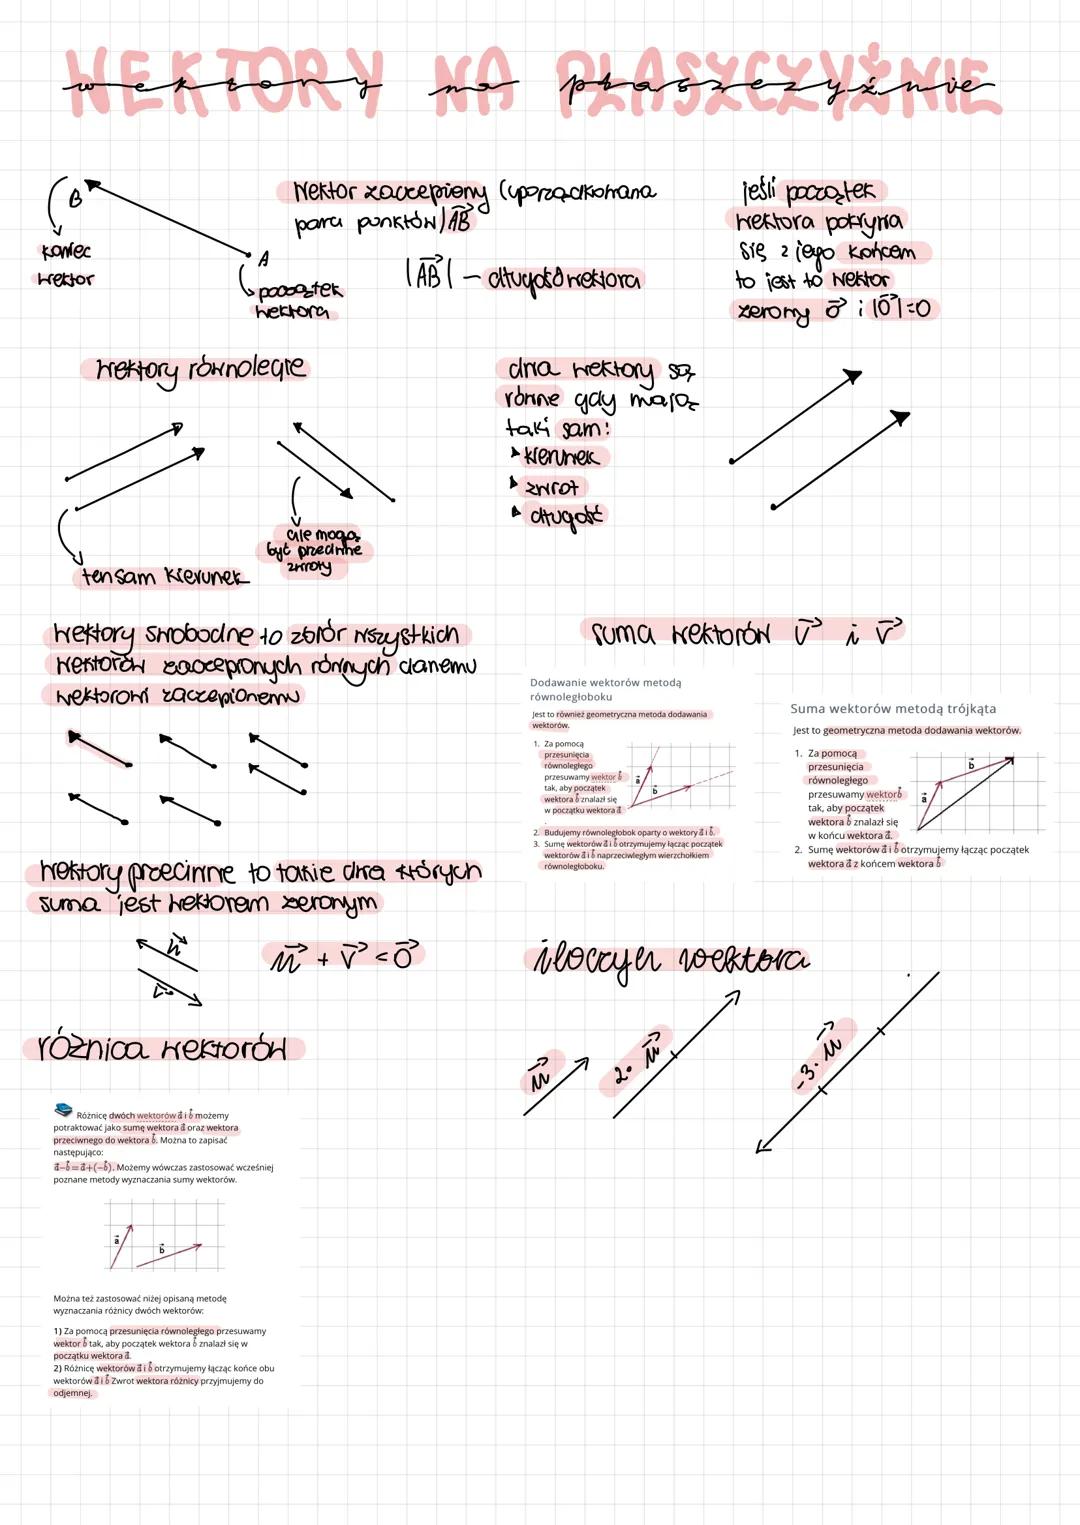 WEKTORY NA PŁASZCZYŹNIE
wektory na płaszczyźnie
B
koniec
wektor
A
początek
wektora
Wektor zaczepiony (uporządkowana
para punktów) AB
|AB| – długość wektora
jeśli początek
wektora pokrywa
się z jego końcem
to jest to wektor
zerowy 0 i |0|=0
wektory równoległe
ten sam kierunek
ale mogą
być przeciwne
zwroty
dwa wektory są
równe gdy mają
taki sam:
kierunek
zwrot
długość
wektory swobodne to zbiór wszystkich
wektorów zaczepionych równych danemu
wektorowi zaczepionemu
suma wektorów v i v
Dodawanie wektorów metodą
równoległoboku
Jest to również geometryczna metoda dodawania
wektorów.
1. Za pomocą
przesunięcia
równoległego
przesuwamy wektor b
tak, aby początek
wektora b znalazł się
w początku wektora a
.
a
b
2. Budujemy równoległobok oparty o wektory a i b.
3. Sumę wektorów a i b otrzymujemy łącząc początek
wektorów a i b naprzeciwległym wierzchołkiem
równoległoboku.
Suma wektorów metodą trójkąta
Jest to geometryczna metoda dodawania wektorów.
1. Za pomocą
przesunięcia
równoległego
przesuwamy wektor b
tak, aby początek
wektora b znalazł się
w końcu wektora a.
a
b
2. Sumę wektorów a i b otrzymujemy łącząc początek
wektora a z końcem wektora b
wektory przeciwne to takie dwa których
suma jest wektorem zerowym
u
v
u + v = 0
iloczyn wektora
u
2· u
-3· u
różnica wektorów
Różnicę dwóch wektorów a i b możemy
potraktować jako sumę wektora a oraz wektora
przeciwnego do wektora b. Można to zapisać
następująco:
a−b=a+(−b). Możemy wówczas zastosować wcześniej
poznane metody wyznaczania sumy wektorów.
a
b
Można też zastosować niżej opisaną metodę
wyznaczania różnicy dwóch wektorów:
1) Za pomocą przesunięcia równoległego przesuwamy
wektor b tak, aby początek wektora b znalazł się w
początku wektora a.
2) Różnicę wektorów a i b otrzymujemy łącząc końce obu
wektorów a i b Zwrot wektora różnicy przyjmujemy do
odjemnej.